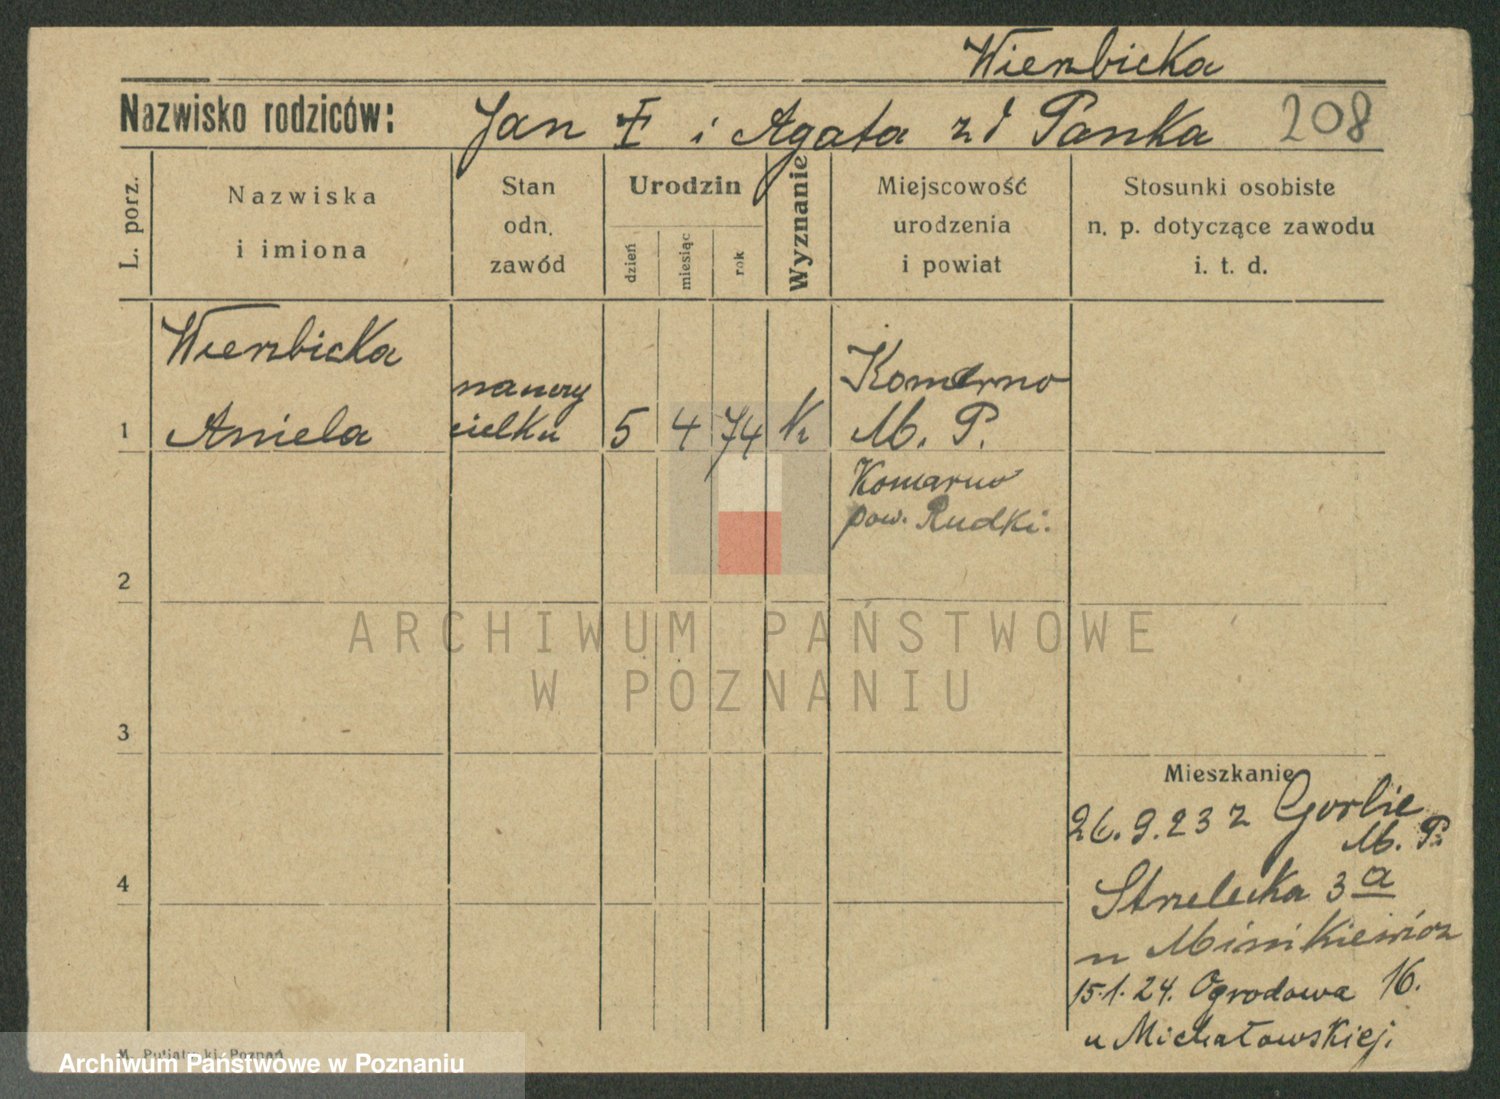 Wierzbicka
Nazwisko rodziców: Jan i Agata zd Panka 208
L. porz.
Nazwiska
i imiona
Stan
odn.
zawód
Urodzin
dzień
miesiąc
rok
Wyznanie
Miejscowość
urodzenia
i powiat
Stosunki osobiste
n. p. dotyczące zawodu
i. t. d.
Wierzbicka
1 Aniela
nauczy
cielka
5 4 74
Komarno
M. P.
Komarno
pow. Rudki.
2
ARCHIWUM PAŃSTWOWE
W POZNANIU
3
4
Mieszkanie
26.9.23 z Gorlic
M. P.
Strzelecka 3a
u
15.1.24. Ogrodowa 16.
u Michałowskiej.
Archiwum Państwowe w Poznaniu